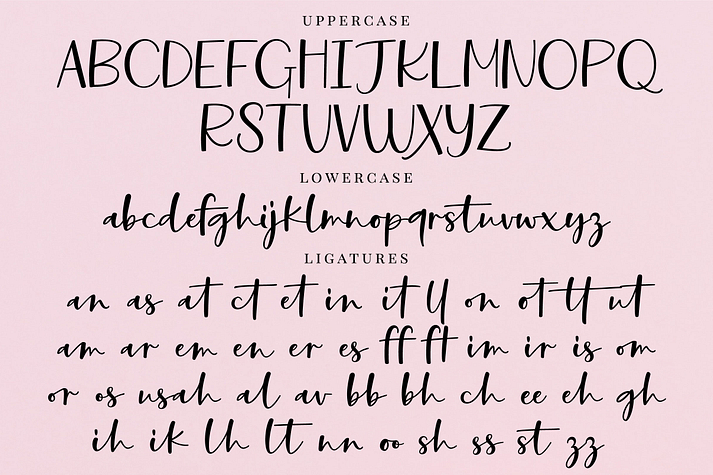 UPPERCASE
ABCDEFGHIJKLMNOPQ
RSTUVWXYZ
LOWERCASE
abcdefghijklmnopqrstuvwxyz
LIGATURES
an as at ct et in it ll on ot tt ut
am ar em en er es ff ft im ir is om
or os us ah al av bb bh ch ee eh gh
ih ik lh lt nn oo sh ss st zz